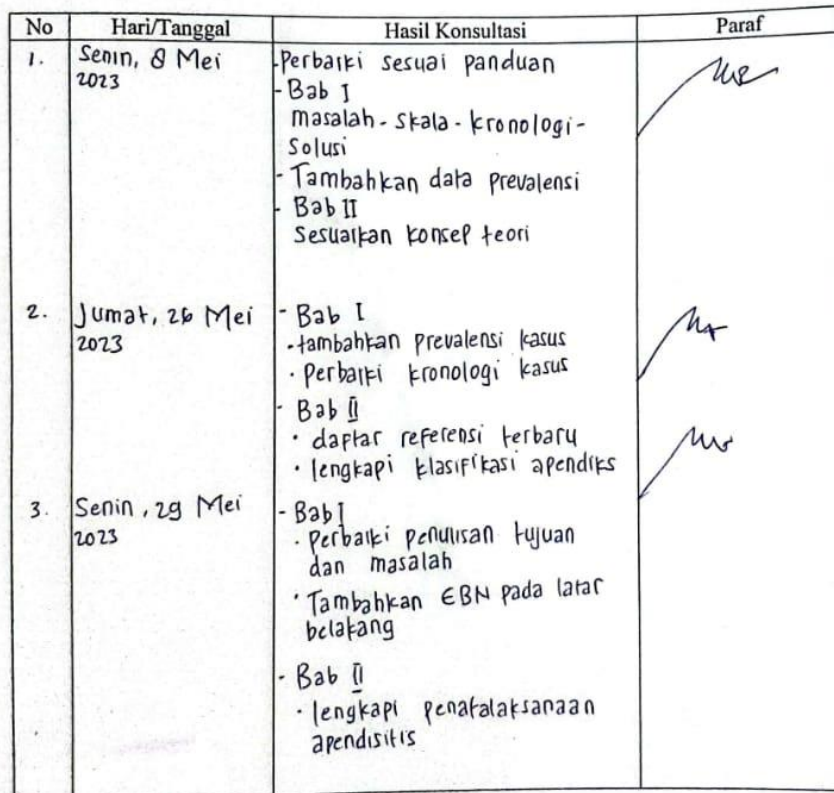 No Hari/Tanggal Hasil Konsultasi Paraf
1. Senin, 8 Mei 2023
- Perbaiki sesuai panduan
- Bab I
masalah - skala - kronologi -
solusi
- Tambahkan data prevalensi
- Bab II
Sesuaikan konsep teori
2. Jumat, 26 Mei 2023
- Bab I
• tambahkan prevalensi kasus
• Perbaiki kronologi kasus
- Bab II
• daftar referensi terbaru
• lengkapi klasifikasi apendiks
3. Senin, 29 Mei 2023
- Bab I
• Perbaiki penulisan tujuan
dan masalah
• Tambahkan EBN pada latar
belakang
- Bab II
• lengkapi penatalaksanaan
apendisitis